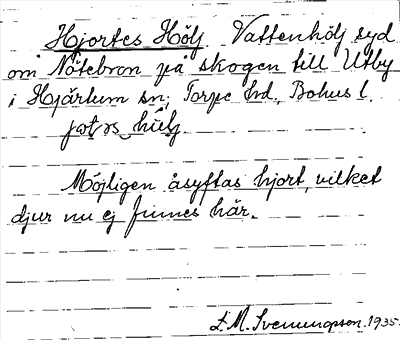 Hjortes Hölj Vattenhölj syd
om Nötebron på skogen till Utby
i Hjärtum sn, Torpe hd, Bohus l.
Möjligen åsyftas hjort, vilket
djur nu ej finnes här.
L. M. Svenungsson. 1935.